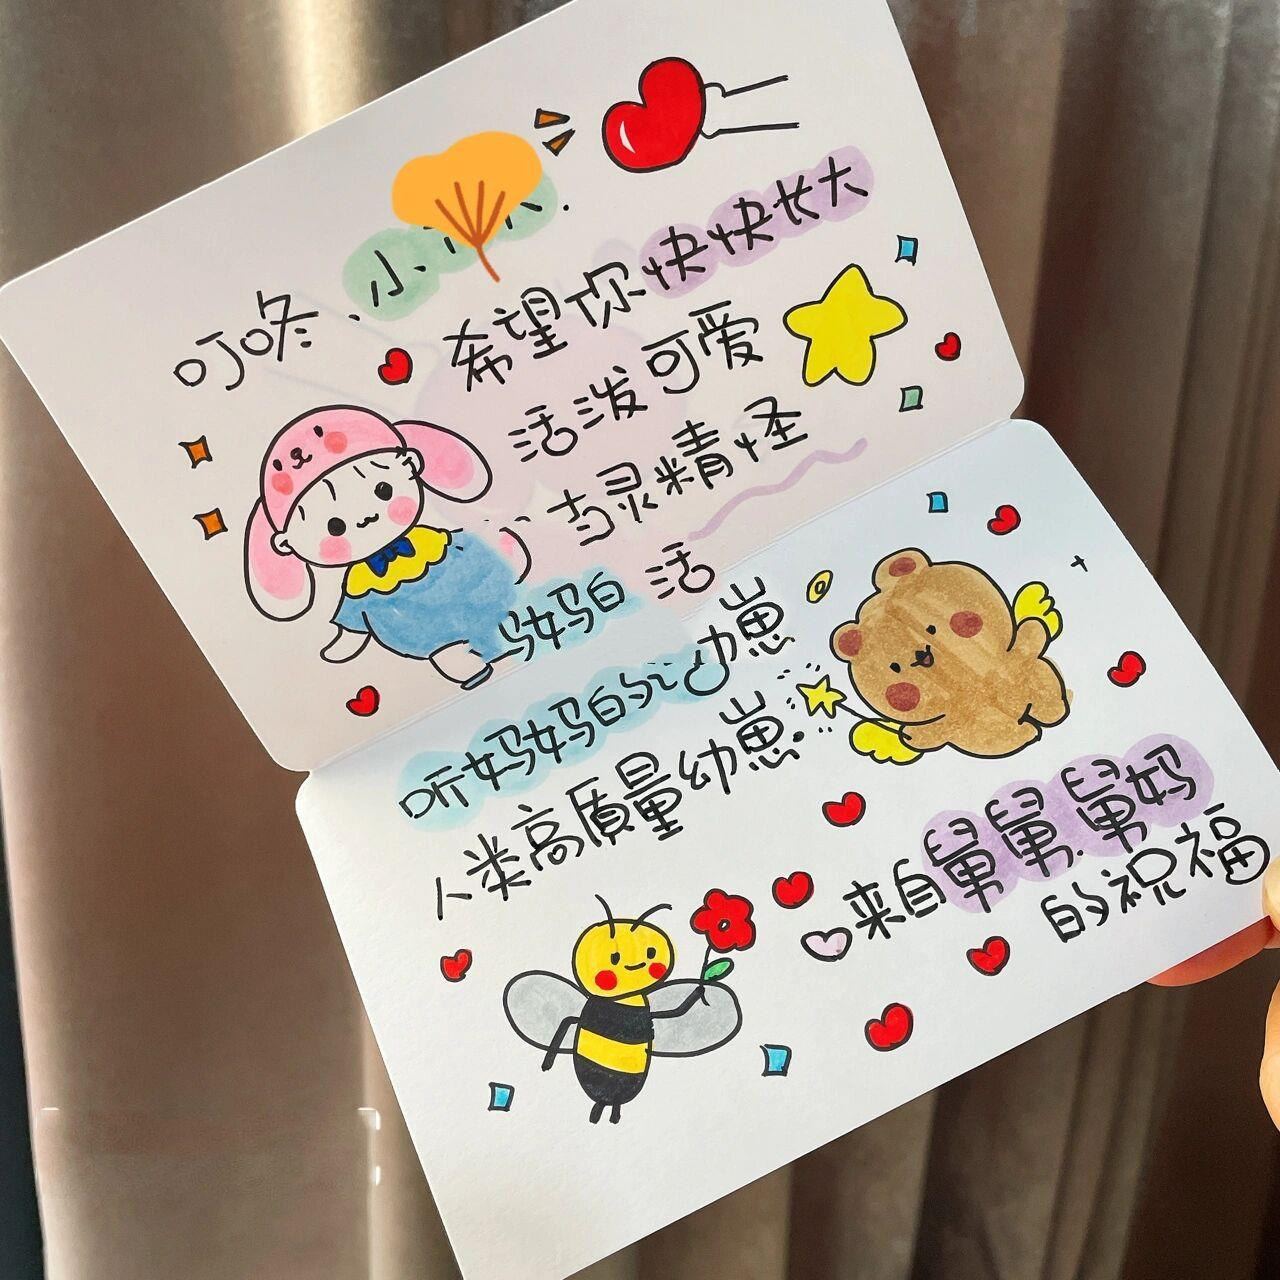 叮咚、小
希望你快快长大
活泼可爱
古灵精怪
妈妈的 活
幼崽
听妈妈的话
人类高质量幼崽.
来自舅舅.舅妈
的祝福